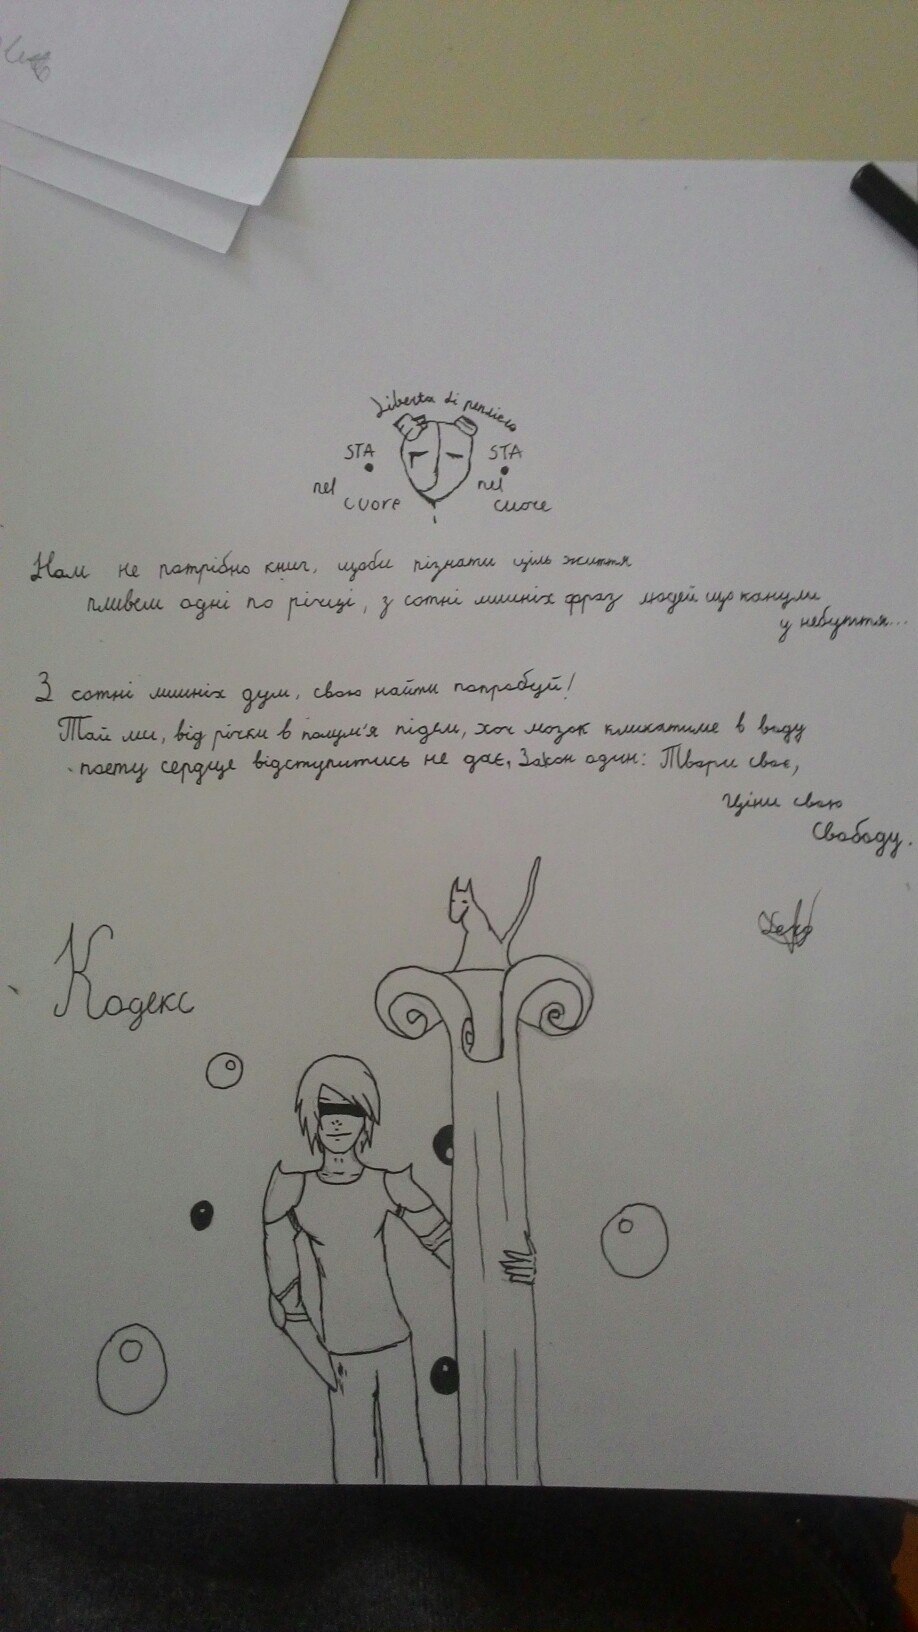 Liberta di pensiero
STA STA
nel nel
cuore cuore
Нам не потрібно книг, щоби пізнати ціль життя
пливем одні по річці, з сотні лишніх фраз людей що канули
у небуття...
З сотні лишніх дум, свою найти попробуй!
Тай ми, від річки в полум'я підем, хоч мозок кликатиме в воду
поету сердце відступитись не дає, Закон один: Твори своє,
Ціни свою
Свободу.
Кодекс